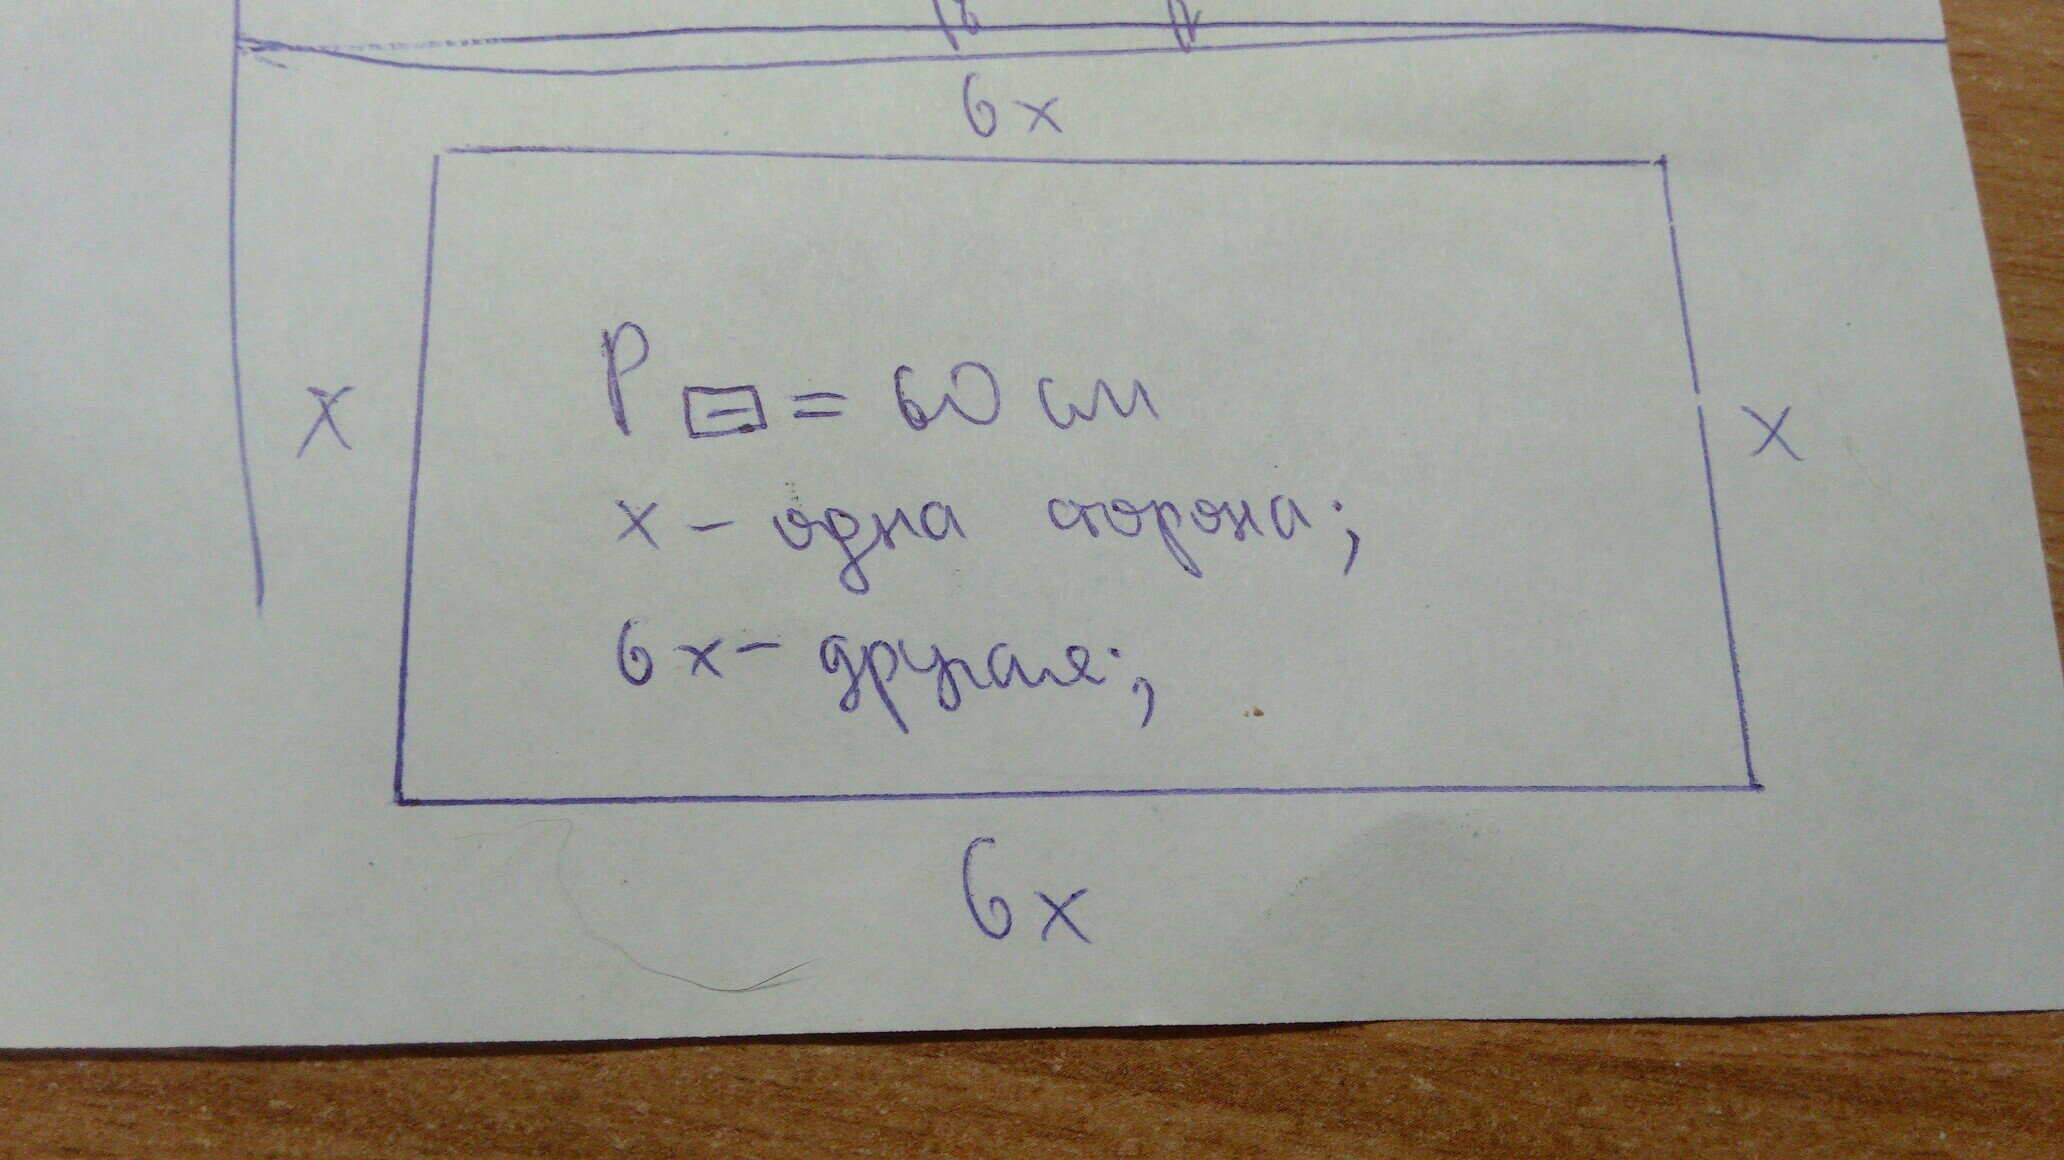 6x
P▭ = 60 см
x x
x - одна сторона;
6x - другая;
6x